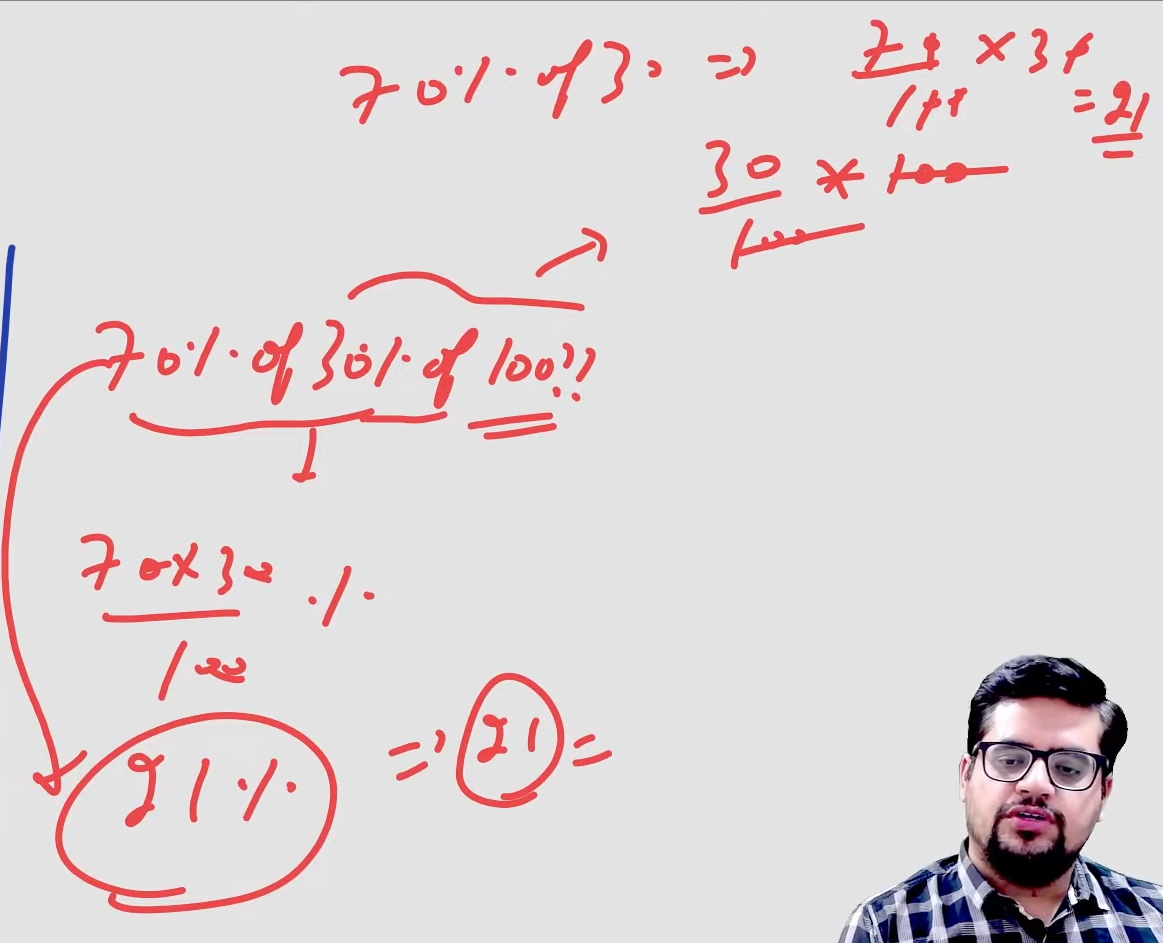 70% of 30 => 70/100 × 30
= 21
30/100 * 100
70% of 30% of 100??
70×30/100 %
21% => 21 =